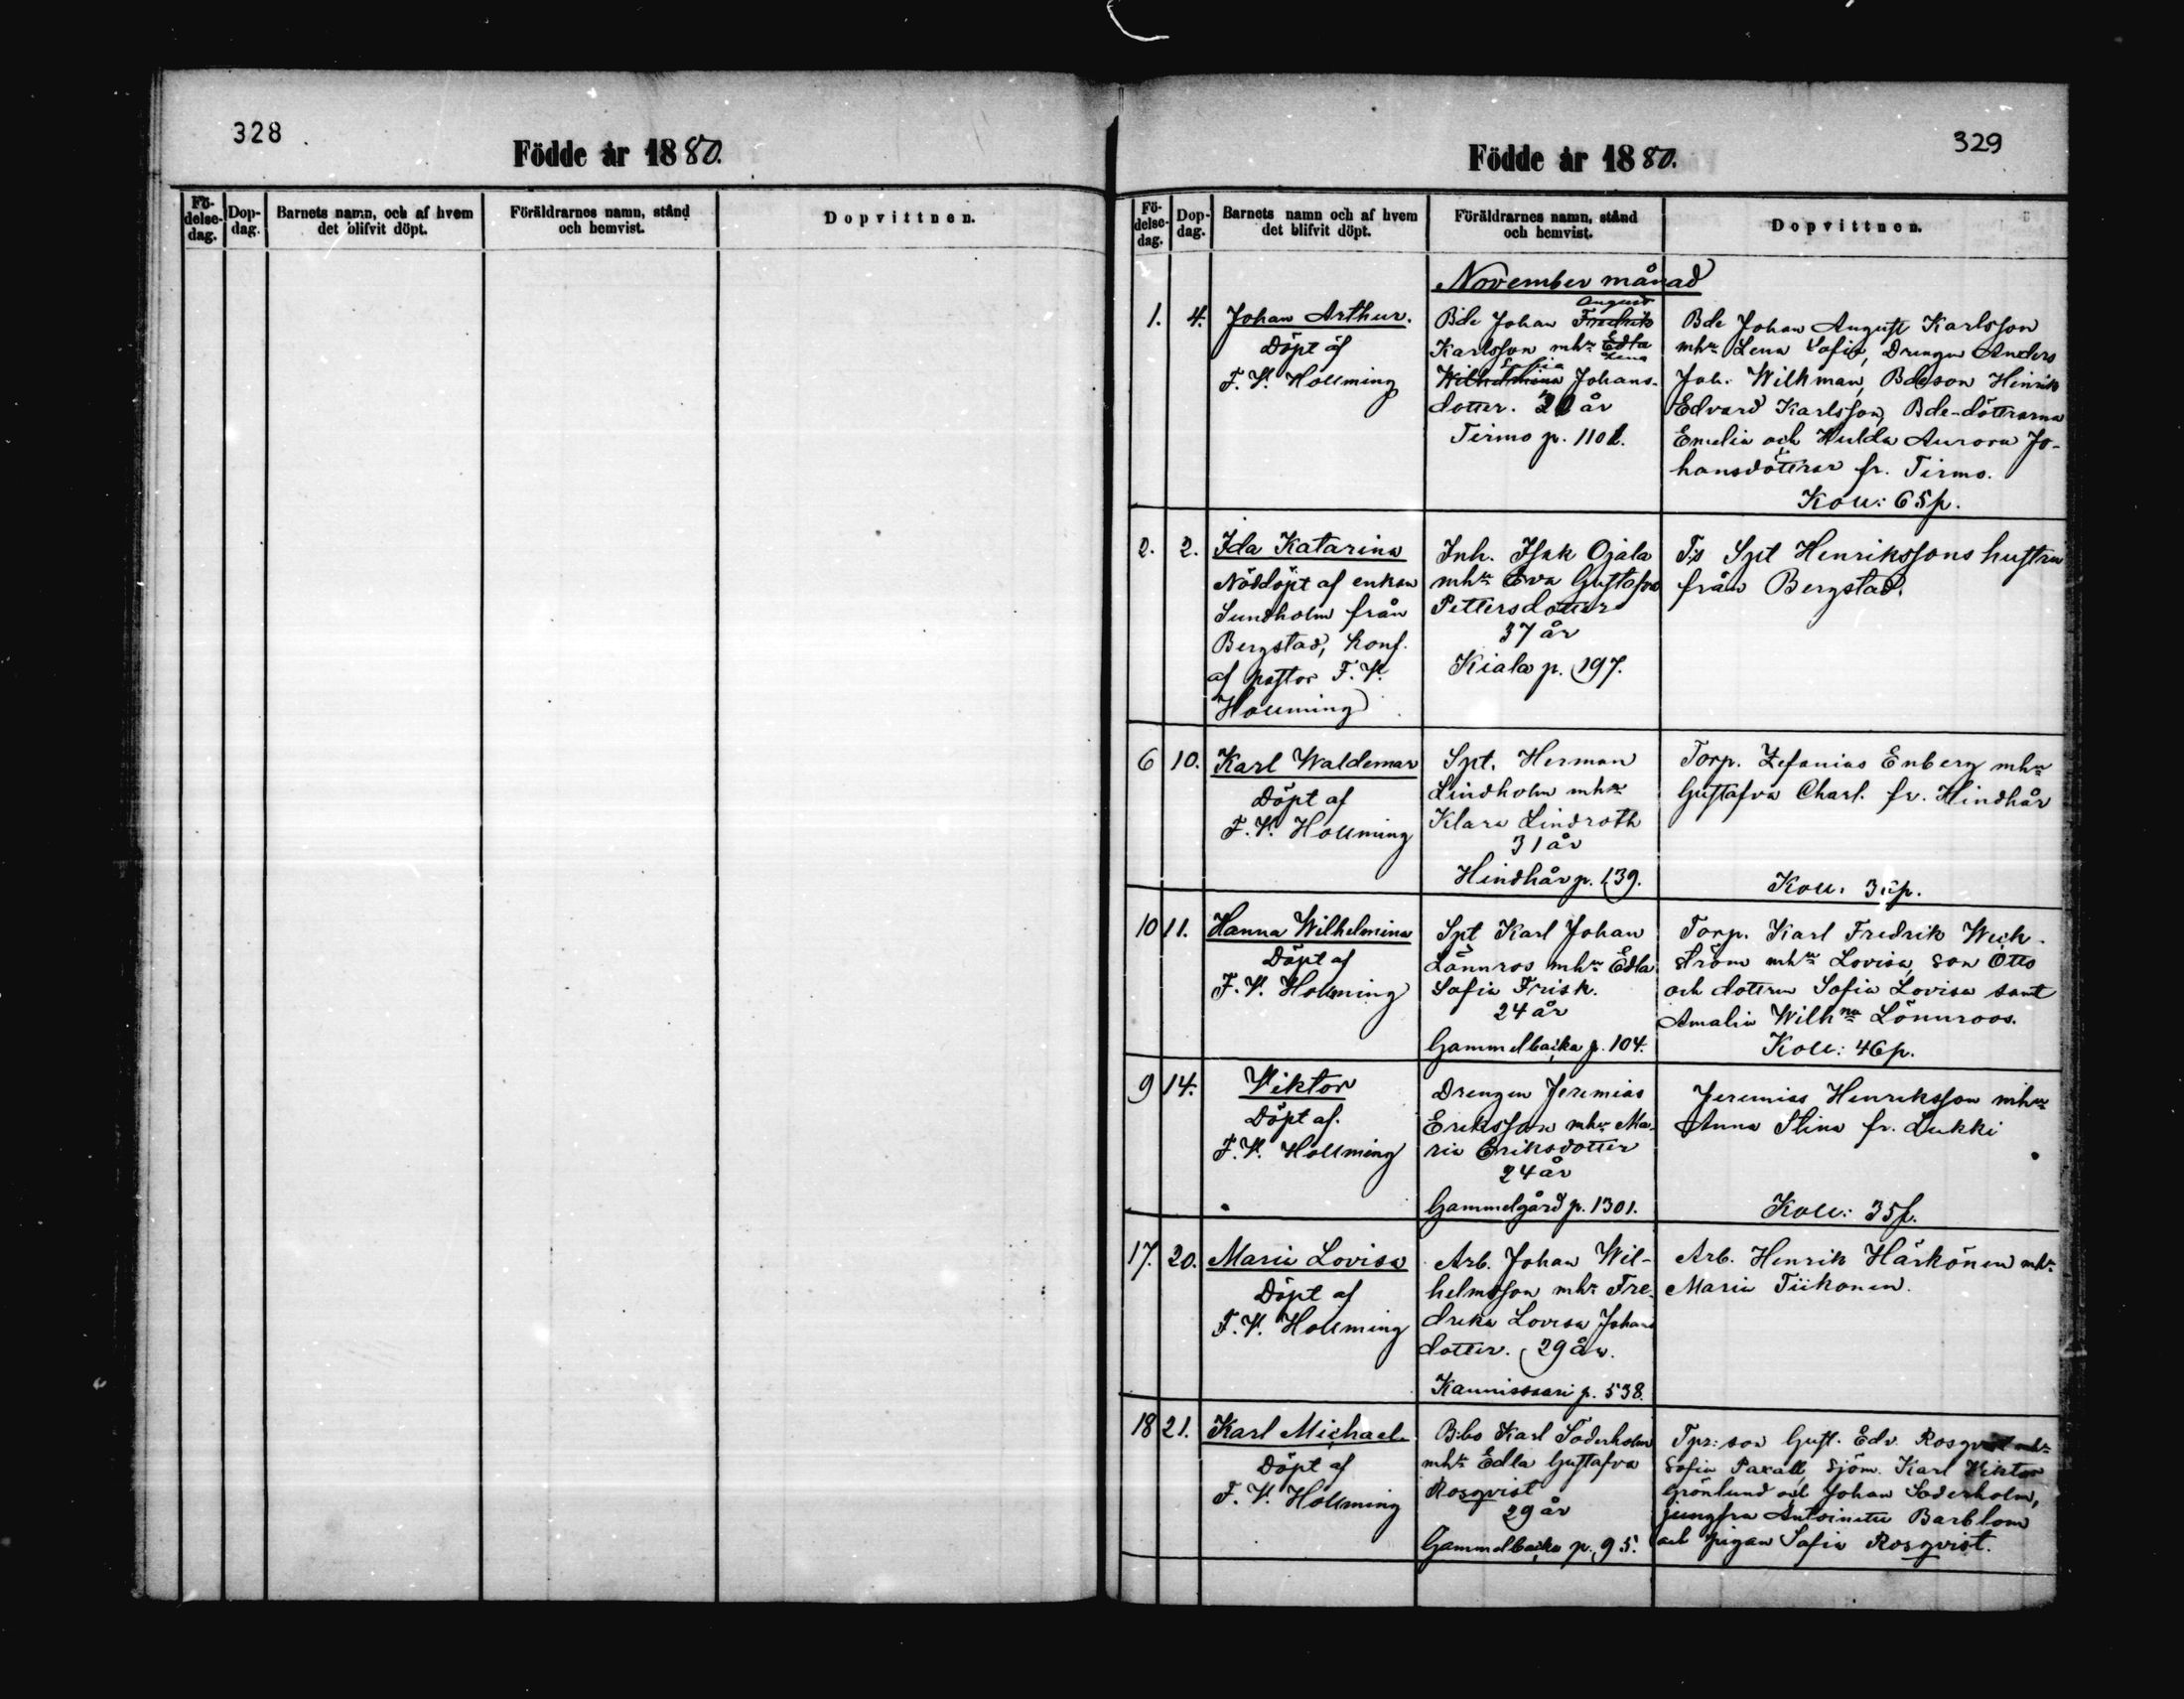 328
Födde år 1880.
Fö-
delse-
dag.
Dop-
dag.
Barnets namn, och af hvem
det blifvit döpt.
Föräldrarnes namn, stånd
och hemvist.
Dopvittnen.
329
Födde år 1880.
Fö-
delse-
dag.
Dop-
dag.
Barnets namn och af hvem
det blifvit döpt.
Föräldrarnes namn, stånd
och hemvist.
Dopvittnen.
November månad
1. 4. Johan Arthur.
Döpt af
F. V. Hollming
August
Bde Johan Fredrik
Karlsson mhu Edla
Lena
Sofia
Wilhelmina Johans-
dotter. år
Tirmo p. 1102.
Bde Johan August Karlsson
mhu Lena Sofia, Drengen Anders
Joh. Wilkman, Bdeson Hinrik
Edvard Karlsson, Bde-döttrarna
Emelia och Hulda Aurora Jo-
hansdöttrar fr. Tirmo.
Koll: 65 p.
2. 2. Ida Katarina
Nöddöpt af enkan
Sundholm från
Bergstad, konf.
af pastor F. V.
Hollming
Inh. Isak Ojala
mhu Eva Gustafva
Pettersdotter
37 år
Kiala p. 197.
Spt Henrikssons hustru
från Bergstad.
6 10. Karl Waldemar
Döpt af
F. V. Hollming
Spt. Herman
Lindholm mhu
Klara Lindroth
31 år
Hindhår p. 139.
Torp. Zefanias Enberg mhu
Gustafva Charl. fr. Hindhår
Koll. p.
10 11. Hanna Wilhelmina
Döpt af
F. V. Hollming
Spt Karl Johan
Lönnros mhu Edla
Sofia Frisk.
24 år
Gammelbacka p. 104.
Torp. Karl Fredrik Weck-
ström mhu Lovisa, son Otto
och dottren Sofia Lovisa samt
Amalia Wilhna Lönnroos.
Koll: 46 p.
9 14. Viktor
Döpt af.
F. V. Hollming
Drengen Jeremias
Eriksson mhu Ma-
ria Eriksdotter
24 år
Gammelgård p. 1301.
Jeremias Henriksson mhu
Anna Stina fr. Lukki
Koll: 35 p.
17. 20. Maria Lovisa
Döpt af
F. V. Hollming
Arb. Johan Wil-
helmsson mhu Fre-
drika Lovisa Johans
dotter. 29 år.
Kaunissaari p. 538.
Arb. Henrik Härkönen mhu
Maria Tiikonen.
18 21. Karl Michael.
Döpt af
F. V. Hollming
Bbo Karl Söderholm
mhu Edla Gustafva
Rosqvist
29 år
Gammelbacka p. 95.
Tpr: son Gust. Edv. Rosqvist mhu
Sofia Paxall, Sjöm. Karl Viktor
Grönlund och Johan Söderholm,
jungfru Antoinette Barblom
och pigan Sofia Rosqvist.